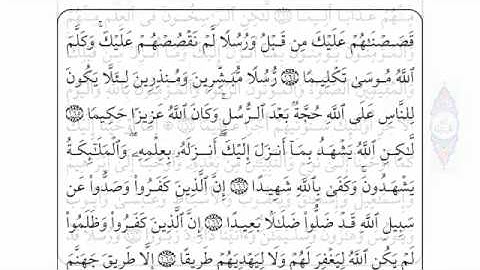 قَصَصْنَٰهُمْ عَلَيْكَ مِن قَبْلُ وَرُسُلًا لَّمْ نَقْصُصْهُمْ عَلَيْكَ ۚ وَكَلَّمَ
ٱللَّهُ مُوسَىٰ تَكْلِيمًا ﴿١٦٤﴾ رُّسُلًا مُّبَشِّرِينَ وَمُنذِرِينَ لِئَلَّا يَكُونَ
لِلنَّاسِ عَلَى ٱللَّهِ حُجَّةٌۢ بَعْدَ ٱلرُّسُلِ ۚ وَكَانَ ٱللَّهُ عَزِيزًا حَكِيمًا ﴿١٦٥﴾
لَّٰكِنِ ٱللَّهُ يَشْهَدُ بِمَآ أَنزَلَ إِلَيْكَ ۖ أَنزَلَهُۥ بِعِلْمِهِۦ ۖ وَٱلْمَلَٰٓئِكَةُ
يَشْهَدُونَ ۚ وَكَفَىٰ بِٱللَّهِ شَهِيدًا ﴿١٦٦﴾ إِنَّ ٱلَّذِينَ كَفَرُوا۟ وَصَدُّوا۟ عَن
سَبِيلِ ٱللَّهِ قَدْ ضَلُّوا۟ ضَلَٰلًۢا بَعِيدًا ﴿١٦٧﴾ إِنَّ ٱلَّذِينَ كَفَرُوا۟ وَظَلَمُوا۟
لَمْ يَكُنِ ٱللَّهُ لِيَغْفِرَ لَهُمْ وَلَا لِيَهْدِيَهُمْ طَرِيقًا ﴿١٦٨﴾ إِلَّا طَرِيقَ جَهَنَّمَ